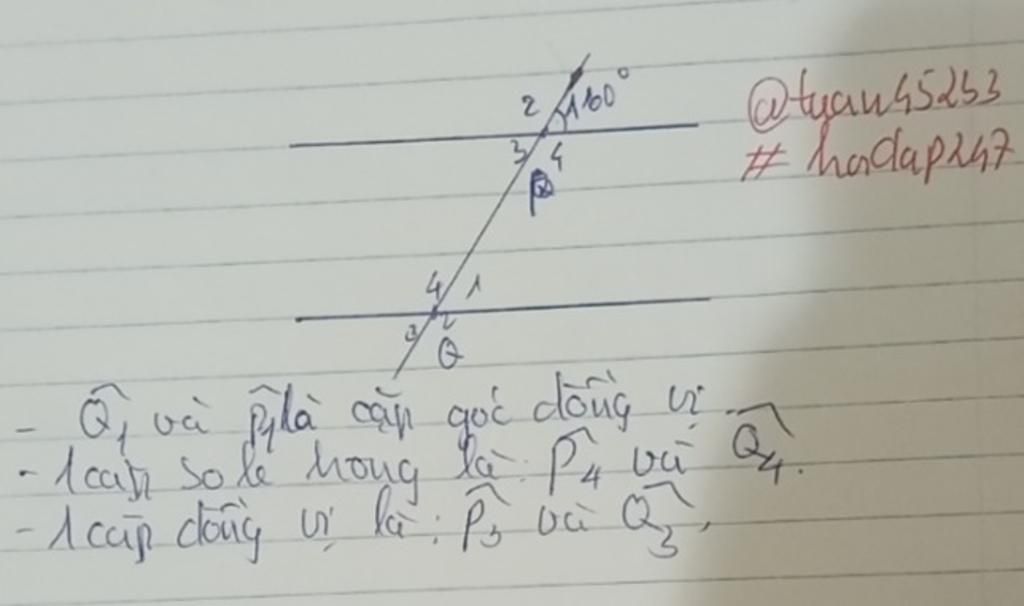 2 1 100°
3 4
P
4 1
3 2
Q
@tyau45253
# hoidap247
- Q̂₁ và P̂₁ là cặp góc đồng vị
- 1 cặp so le trong là: P̂₄ và Q̂₄.
- 1 cặp đồng vị là: P̂₃ và Q̂₃.